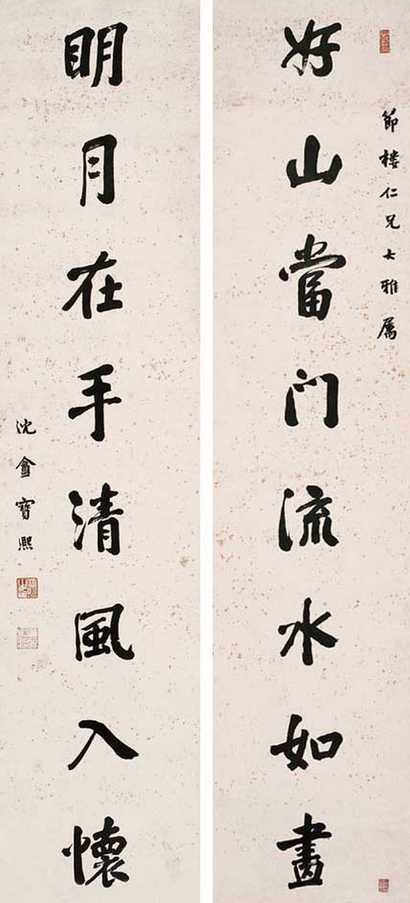 節樓仁兄大雅屬
好山當门流水如畫
明月在手清風入懷
沈盦寶熙